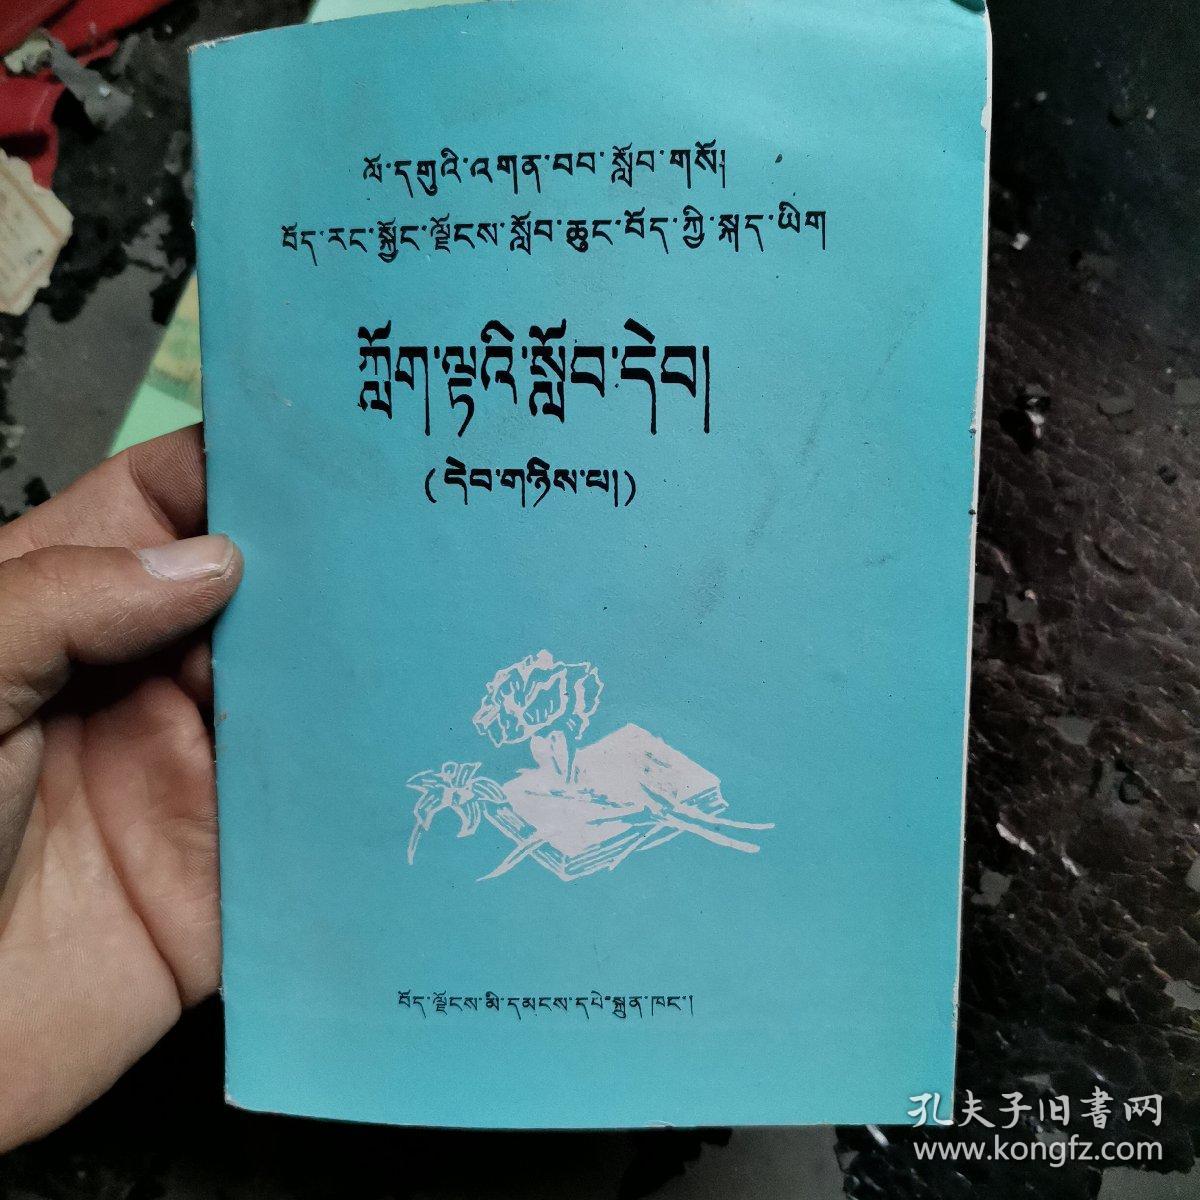 ལོ་དགུའི་འགན་བབ་སློབ་གསོ།
བོད་རང་སྐྱོང་ལྗོངས་སློབ་ཆུང་བོད་ཀྱི་སྐད་ཡིག
ཀློག་ལྟའི་སློབ་དེབ།
(དེབ་གཉིས་པ།)
བོད་ལྗོངས་མི་དམངས་དཔེ་སྐྲུན་ཁང་།
孔夫子旧書网
www.kongfz.com